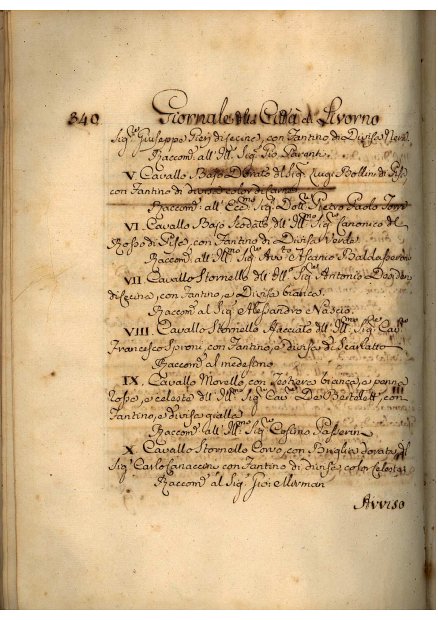 340 Giornale della Città di Livorno
Sig.re Giuseppe Pieri di Fecine, con Fantino di Divisa Nera
Raccom. all' Ill. Sig. Pio Parenti
V. Cavallo Bajo Dorato del Sig. Luigi Bollini di Pisa
con Fantino di divisa color di carne
Raccom. all' Ecc. Sig. Dott. Pietro Paolo
VI. Cavallo Bajo Scodato dell' Ill.mo Sig. Canonico del
Rosso di Pisa, con Fantino di Divisa Verde
Raccom. all' Ill. Sig. Avv. Ascanio Baldasseroni
VII. Cavallo Stornello dell' Ill. Sig. Antonio
di Fecine, con Fantino, e Divisa bianca
Raccom. al Sig. Alessandro Nascio.
VIII. Cavallo Stornello dell' Ill. Sig. Cav.
Francesco Sproni, con Fantino, e divisa di Scarlatto
Raccom. al medesimo
IX. Cavallo Morello, con Testiera bianca, e penna
Rossa, e celeste dell' Ill. Sig. Cav. De Bertolett, con
Fantino, e divisa gialla
Raccom. all' Ill. Sig. Cosimo Passerin
X. Cavallo Stornello Corvo, con Briglia dorata del
Sig. Carlo Canaccini con Fantino di divisa color Celeste
Raccom. al Sig. Gio: Merman
Avviso